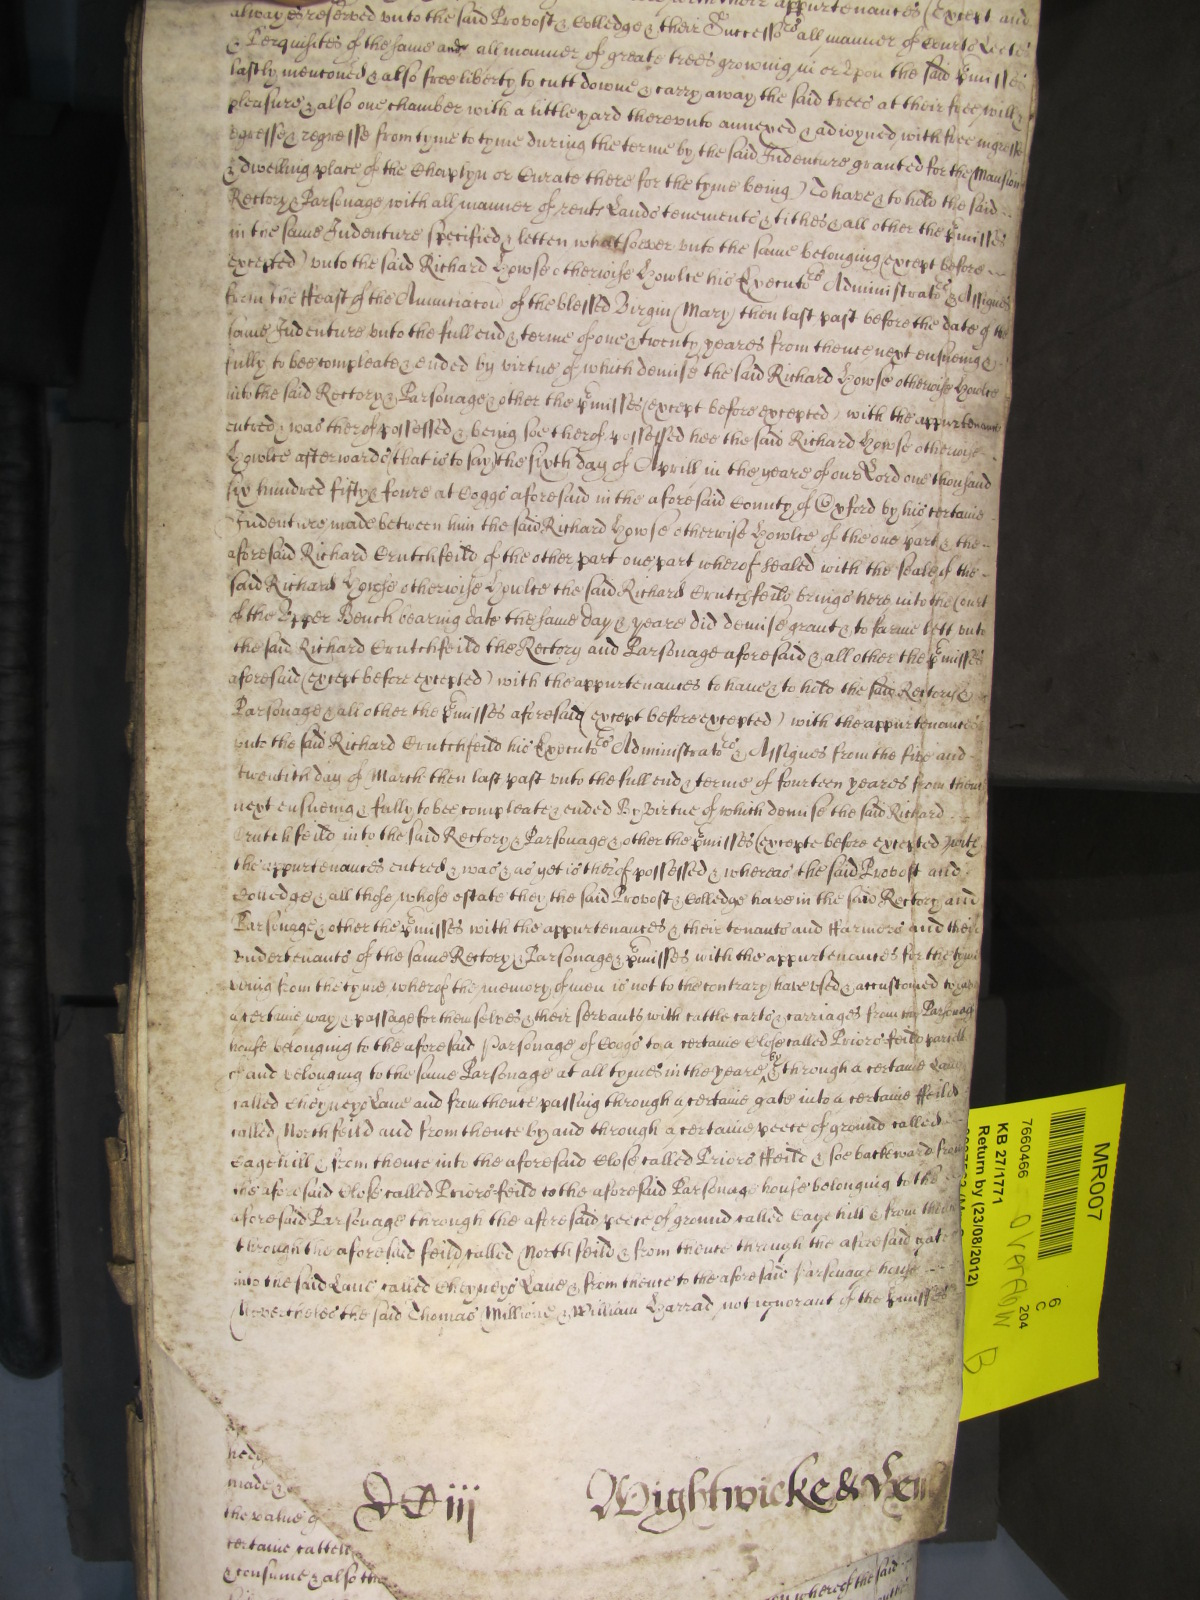 appurtenances (Except and
alwayes reserved vnto the said Provost & Colledge & their Successors all manner of Courts Leets
& Perquisites of the same and all manner of greate trees growing in or vpon the said p'misses
lastly mentoned & also free liberty to cutt downe & carry away the said trees at their free will &
pleasure & also one chamber with a little yard therevnto annexed & adioyned with free ingresse
egresse & regresse from tyme to tyme during the terme by the said Indenture granted for the Mansion
& dwelling place of the Chaplyn or Curate there for the tyme being) To have & to hold the said
Rectory & Parsonage with all manner of rents Lands tenements & tithes & all other the p'misses
in the same Indenture specified & letten whatsoever vnto the same belonging (except before
excepted) vnto the said Richard Howse otherwise Howlce his Executors Administrators & Assignes
from the ffeast of the Annunciacon of the blessed Virgin Mary then last past before the date of the
same Indenture vnto the full end & terme of one & twenty yeares from thence next ensueing &
fully to bee compleate & ended by virtue of which demise the said Richard Howse otherwise Howlce
into the said Rectory & Parsonage & other the p'misses (except before excepted) with the appurtenances
entred & was therof possessed & being soe therof possessed hee the said Richard Howse otherwise
Howlce afterwards that is to say the sixth day of Aprill in the yeare of our Lord one thousand
six hundred fifty & foure at Coggs aforesaid in the aforesaid County of Oxford by his certaine
Indenture made between him the said Richard Howse otherwise Howlce of the one part & the
aforesaid Richard Crutchfeild of the other part one part wherof sealed with the seale of the
said Richard Howse otherwise Howlce the said Richard Crutchfeild brings here into the Court
of the Vpper Bench bearing date the same day & yeare did demise grant & to farme lett vnto
the said Richard Crutchfeild the Rectory and Parsonage aforesaid & all other the p'misses
aforesaid (except before excepted) with the appurtenances to have & to hold the said Rectory &
Parsonage & all other the p'misses aforesaid (except before excepted) with the appurtenances
vnto the said Richard Crutchfeild his Executors Administrators & Assignes from the five and
twentith day of March then last past vnto the full end & terme of fourteen yeares from thence
next ensueing & fully to bee compleate & ended By virtue of which demise the said Richard
Crutchfeild into the said Rectory & Parsonage & other the p'misses (excepte before excepted) with
the appurtenances entred & was & as yet is therof possessed & whereas the said Provost and
Colledge & all those whose estate they the said Provost & Colledge have in the said Rectory and
Parsonage & other the p'misses with the appurtenances & their tenants and ffarmers and their
vndertenants of the same Rectory & Parsonage & p'misses with the appurtenances for the tyme
being from the tyme wherof the memory of men is not to the contrary have vsed & accustomed to have
a certaine way & passage for themselves & their servants with cattle carts & carriages from the Parsonage
house belonging to the aforesaid Parsonage of Coggs to a certaine Close called Priors ffeild parcell
of and belonging to the same Parsonage at all tymes in the yeare by & through a certaine Lane
called Cheyneys Lane and from thence passing through a certaine gate into a certaine ffeild
called Northfeild and from thence by and through a certaine peece of ground called
Cagehill & from thence into the aforesaid Close called Priors ffeild & soe backward from
the aforesaid Close called Priors feild to the aforesaid Parsonage house belonging to the
aforesaid Parsonage through the aforesaid peece of ground called Cagehill & from thence
through the aforesaid feild called Northfeild & from thence through the aforesaid gate
into the said Lane called Cheyneys Lane & from thence to the aforesaid Parsonage house
Neverthelesse the said Thomas Millione & William Harrad not ignorant of the p'misses
made &
the value of
certaine cattell
& consume & also the
iiij
Wightwicke &
wherof the said
MR007
6
C
204
7660466
KB 27/1771
Return by (23/08/2012)
overflow
B